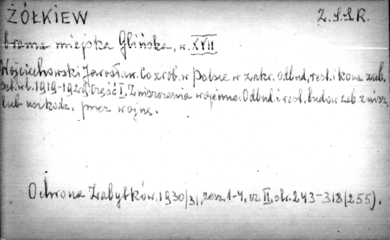 ŻÓŁKIEW Z.S.R.R.
brama miejska Glińska, w. XVII
Wojciechowski Jarosław. Co zrob. w Polsce w zakr. Odbud, rest. i kons. zab.
1919-1929. Część I. Zniszczenia wojenne. Odbud i rest. budow. zab. zniszcz
lub uszkodz. przez wojnę.
Ochrona Zabytków. 1930/31, zesz. 1-4, cz. II, str. 243-318 (255).